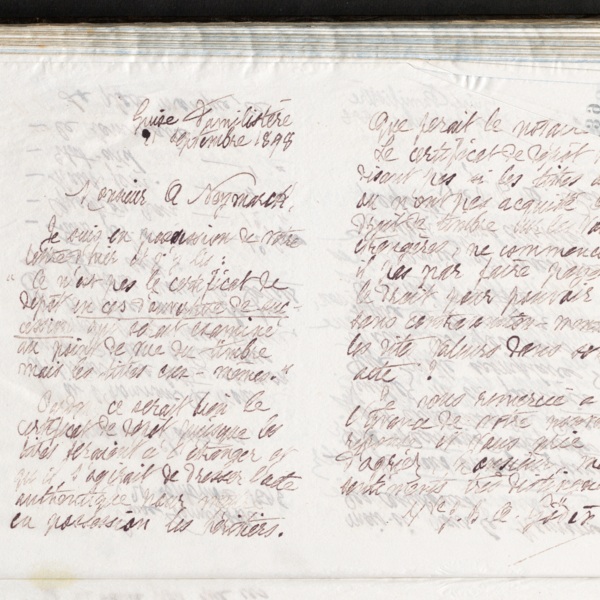 Guise Familistère
septembre 1898
Monsieur A Neymarck,
Je suis en possession de votre
lettre hier et j'y lis :
"Ce n'est pas le certificat de
dépôt en cas d'ouverture de suc-
cession qui serait examiné
au point de vue du timbre
mais les titres eux-mêmes."
ce serait bien le
certificat de dépôt puisque les
titres seraient à l'étranger et
qu'il s'agirait de dresser l'acte
authentique pour
en possession les héritiers.
Que ferait le notaire
Le certificat de dépôt
disant pas si les titres
ou n'ont pas acquitté
droit de timbre
étrangères, ne commence
il pas par faire payer
le droit pour pouvoir
sans contravention
les dites valeurs dans
acte ?
Je vous remercie
l'avance de votre
réponse et vous prie
d'agréer, Monsieur,
sentiments très distingués